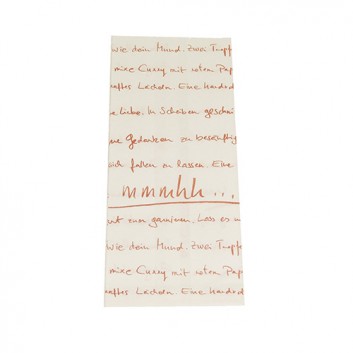 wie dein Mund. Zwei Tropf
mixe Curry mit roten Pap
nftes Lächeln. Eine Hundred
e Liebe. In Scheiben geschni
ne Gedanken zu beschäftig
sich fallen zu lassen. Eine
mmmhh...
mt zum garnieren. Lass es
wie dein Mund. Zwei Tropf
mixe Curry mit roten Pap
nftes Lächeln. Eine Hundred